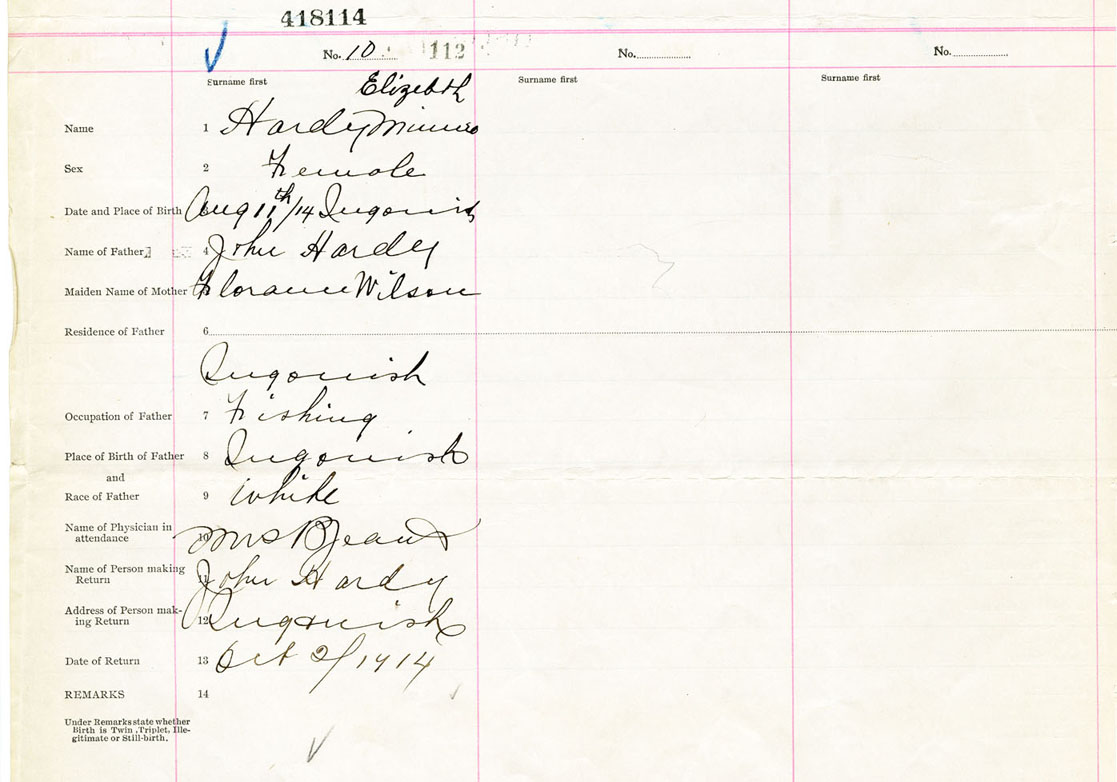 418114
No. 10 112 No. No.
Surname first Surname first Surname first
Elizebth
Name 1 Hardy Minnie
Sex 2 Female
Date and Place of Birth Aug 11th/14 Ingonish
Name of Father 4 John Hardy
Maiden Name of Mother Wilson
Residence of Father 6
Ingonish
Occupation of Father 7 Fishing
Place of Birth of Father 8 Ingonish
and
Race of Father 9 White
Name of Physician in
attendance 10 Mrs B
Name of Person making
Return 11 John Hardy
Address of Person mak-
ing Return 12 Ingonish
Date of Return 13 Oct 2/1914
REMARKS 14
Under Remarks state whether
Birth is Twin, Triplet, Ille-
gitimate or Still-birth.